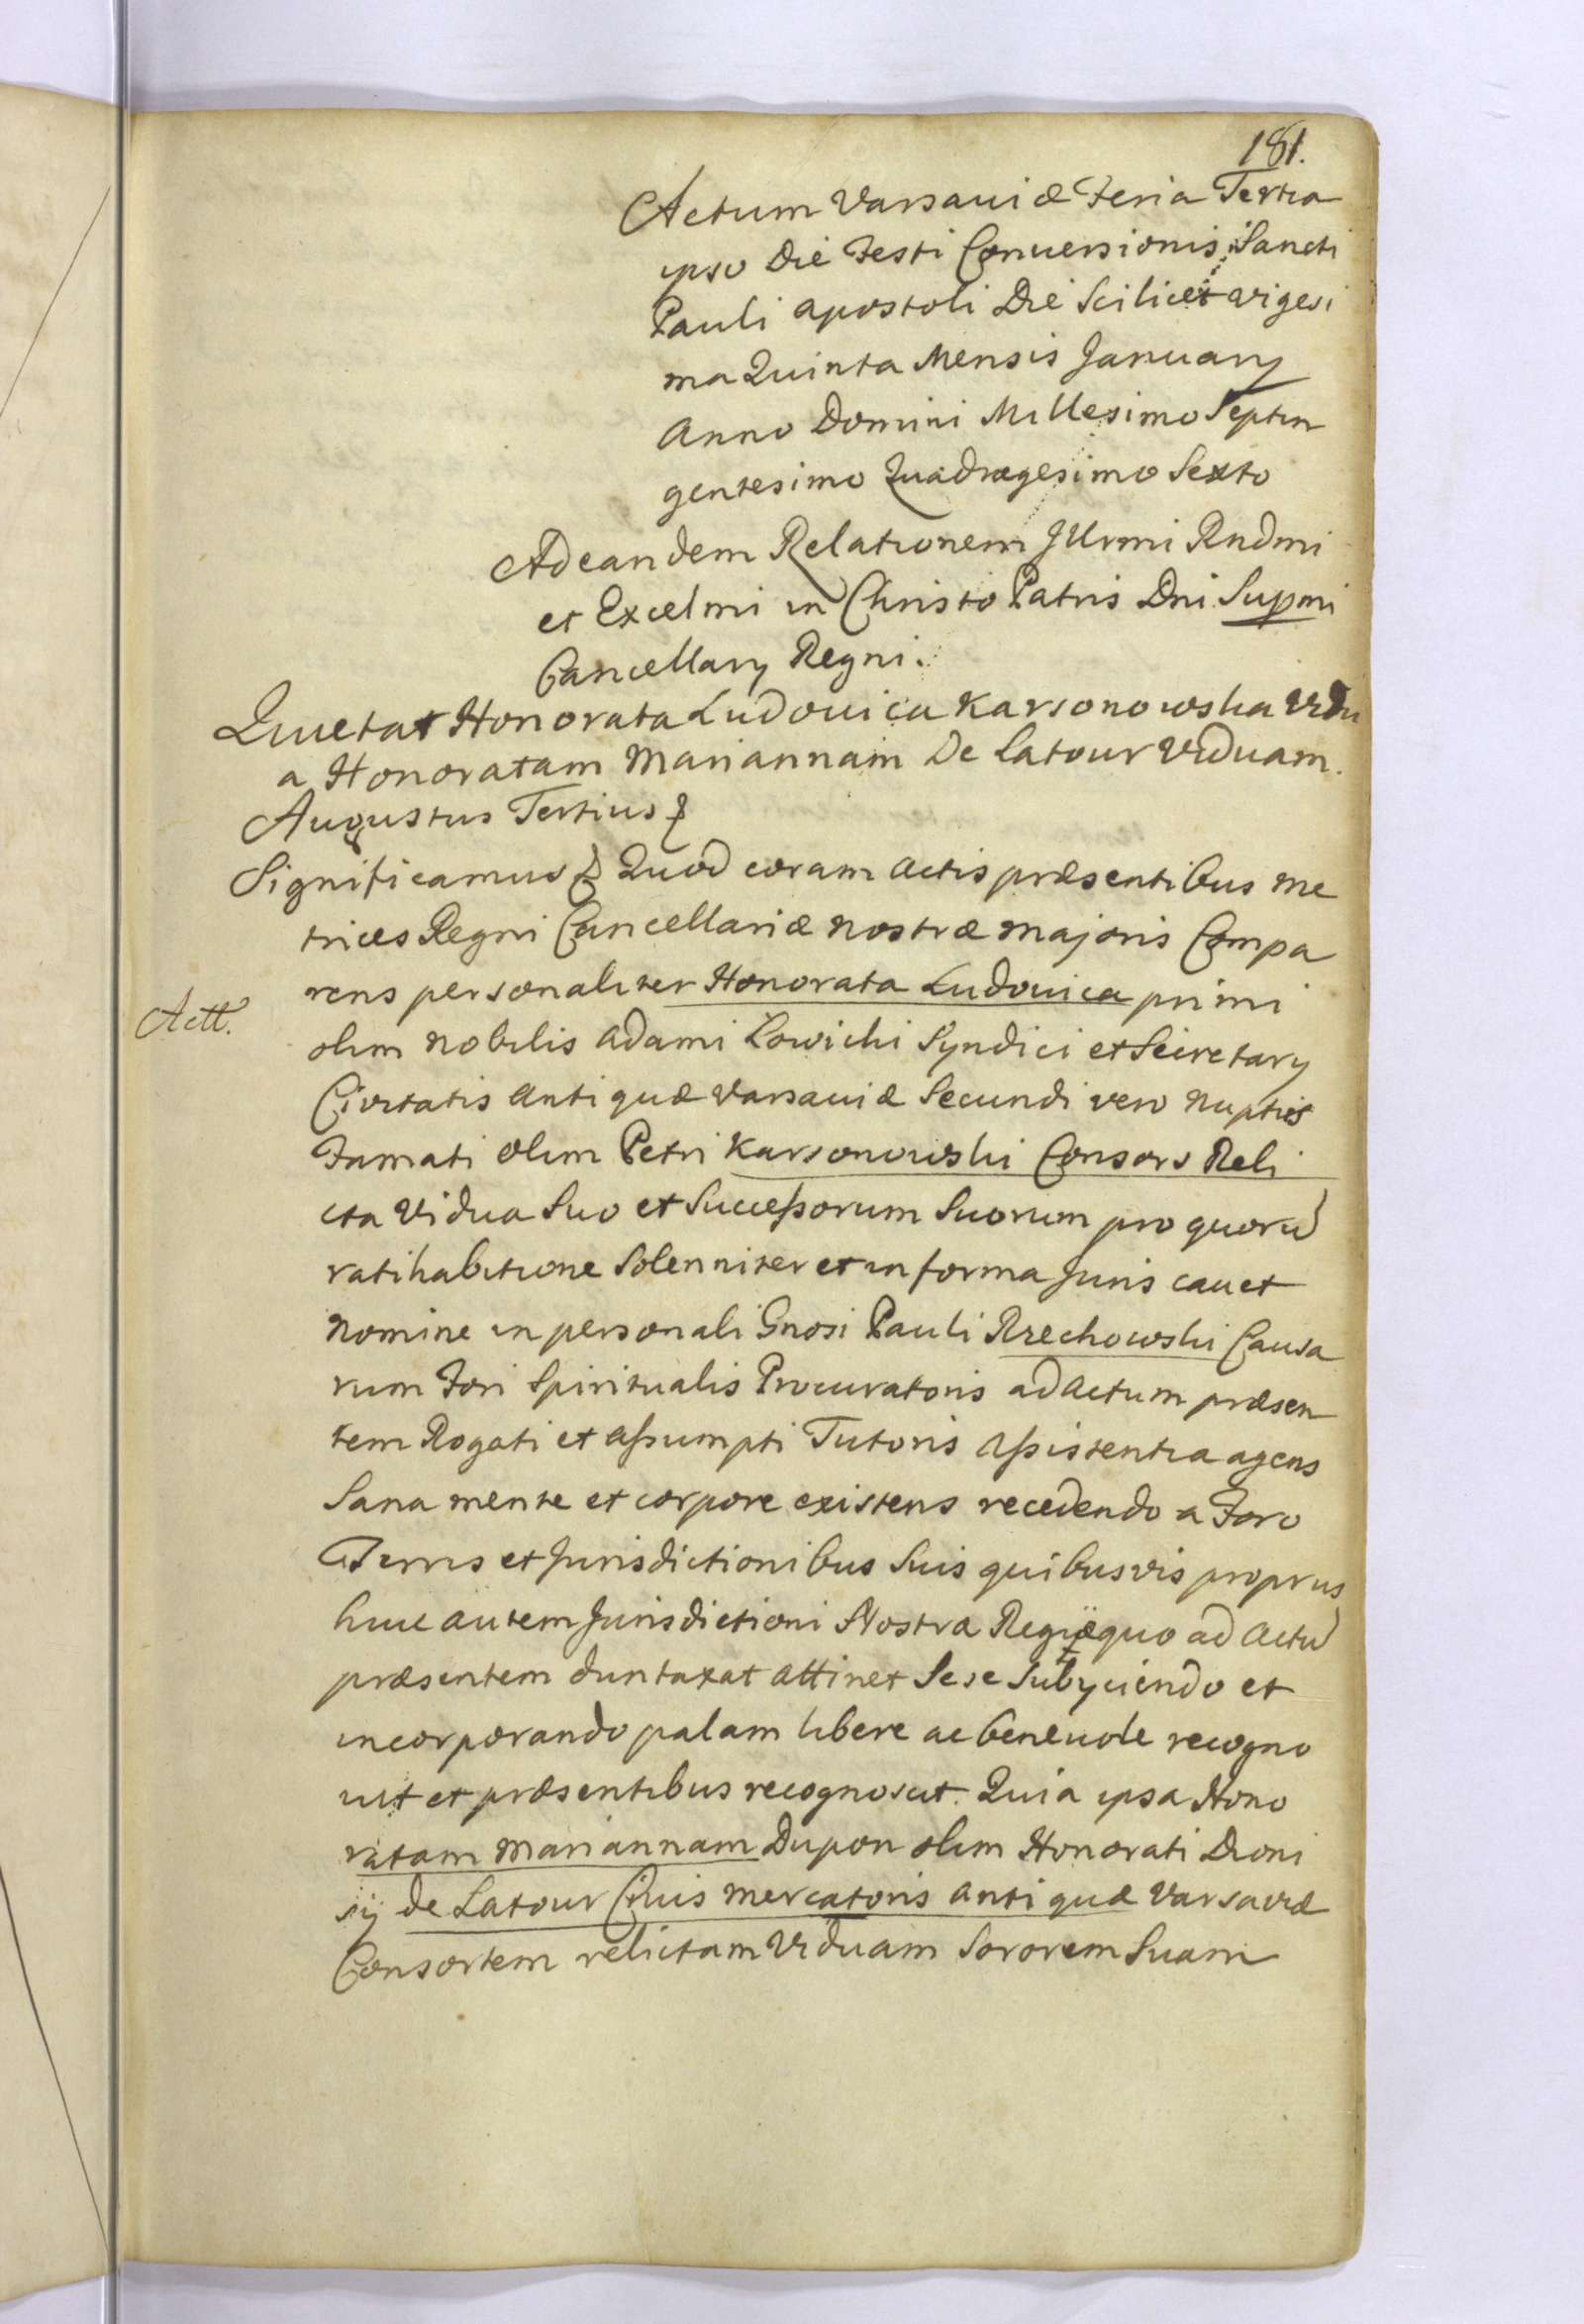 181.
Actum Varsaviæ Feria Tertia
ipso Die Festi Conversionis Sancti
Pauli Apostoli Die Scilicet vigesi
ma Quinta Mensis January
Anno Domini Millesimo Septin
gentesimo Quadragesimo Sexto
Ad eandem Relationem Illrmi Rndmi
et Excelmi in Christo Patris Dni Supmi
Cancellary Regni.
Quietat Honorata Ludovica Karsonowska Vidu
a Honoratam Mariannam De Latour Viduam.
Augustus Tertius &
Significamus & Quod coram Actis præsentibus Me
trices Regni Cancellariæ Nostræ Majoris Compa
rens personaliter Honorata Ludovica primi
Actt.
olim Nobilis Adami Lowicki Syndici et Secretary
Civitatis Antiquæ Varsaviæ Secundi vero Nuptijs
Famati olim Petri Karsonowski Consors Reli
cta Vidua Suo et Successorum Suorum pro quorũ
ratihabitione Solenniter et in forma Juris cavet
Nomine in personali Gnosi Pauli Rzechowski Causa
rum Fori Spiritualis Procuratoris ad Actum præsen
tem Rogati et Assumpti Tutoris Assistentia agens
Sana mente et corpore existens recedendo a Foro
Terris et Jurisdictionibus Suis quibusvis proprijs
huic autem Jurisdictioni Nostræ Regiæ quo ad Actũ
præsentem duntaxat attinet Sese Subyciendo et
incorporando palam libere ac benevole recogno
vit et præsentibus recognoscit. Quia ipsa Hono
ratam Mariannam Dupon olim Honorati Dioni
sij de Latour Civis Mercatoris Antiquæ Varsaviæ
Consortem relictam Viduam Sororem Suam